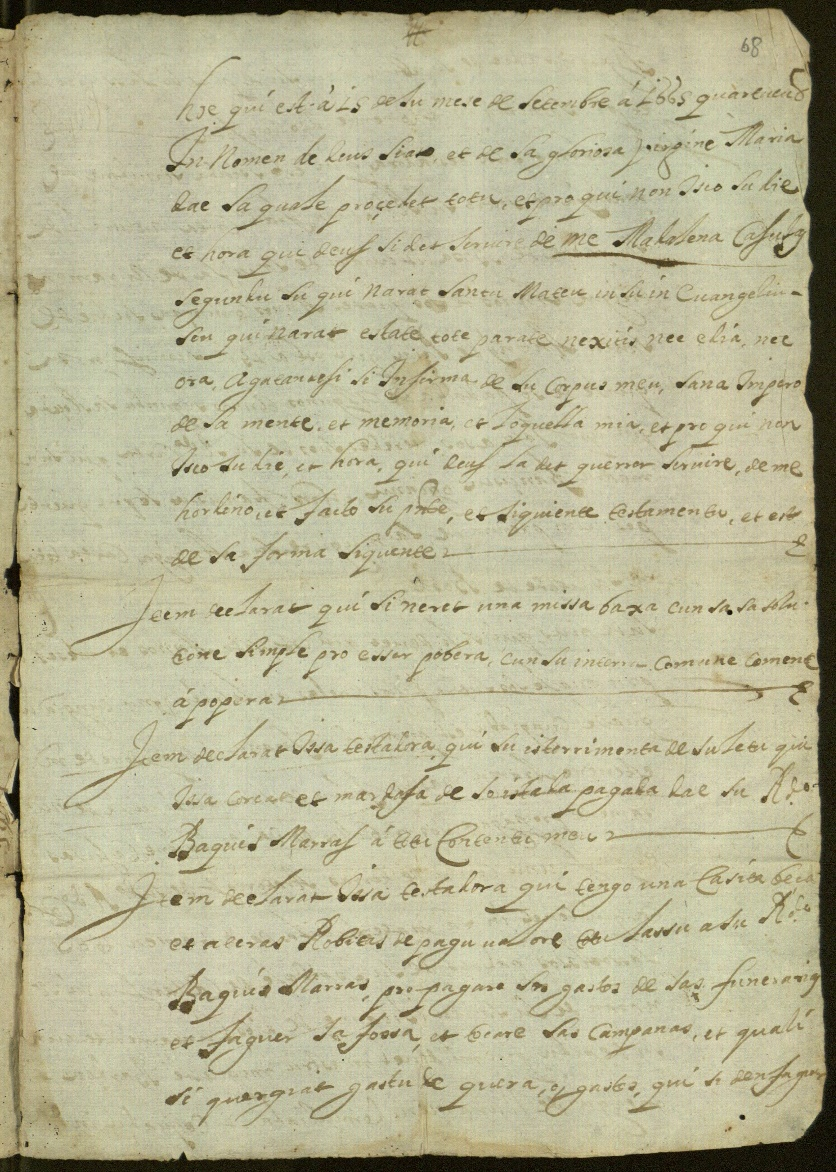 68
hoe qui est à 15 de su mese de Setembre á 1665
In Nomen de deus siat, et de sa gloriosa Vergine Maria
dae sa quale proçedet totu, et pro qui non isco su die
et hora qui deus si det servire de me Madalena Casula
segundu su qui narat santu Mateu in su in Evangeliu
sou qui narat estate tote parate nexitis nee e dia, nee
ora, agatantesi si Infirma de su corpus meu, sana Impero
de sa mente, et memoria, et loquella mia, et pro qui non
isco su die, et hora, qui deus la det querrer servire, de me
hordino, et fatto su pnte, et siguiente testamentu, et est
de sa forma siquente
Item declarat qui si neret una missa baxa cun sa asolu
tione simple pro esser pobera, cun su interru comune coment
á popera
Item declarat issa testadora qui su isterrimenta de su letu qui
issa corcat et de pagada dae su Rdo
Baquis Marras á totu Contentu meu
Item declarat issa testadora qui tengo una Casita beça
et ateras Robitas de pagu valore totu lassu a su Rdo
Baquis Marras, pro pagare sos gastos de sas funerarias
et faguer sa fossa, et tocare sas Campanas, et quali
si quergiat gastu de quera, gastos, qui si den faguer